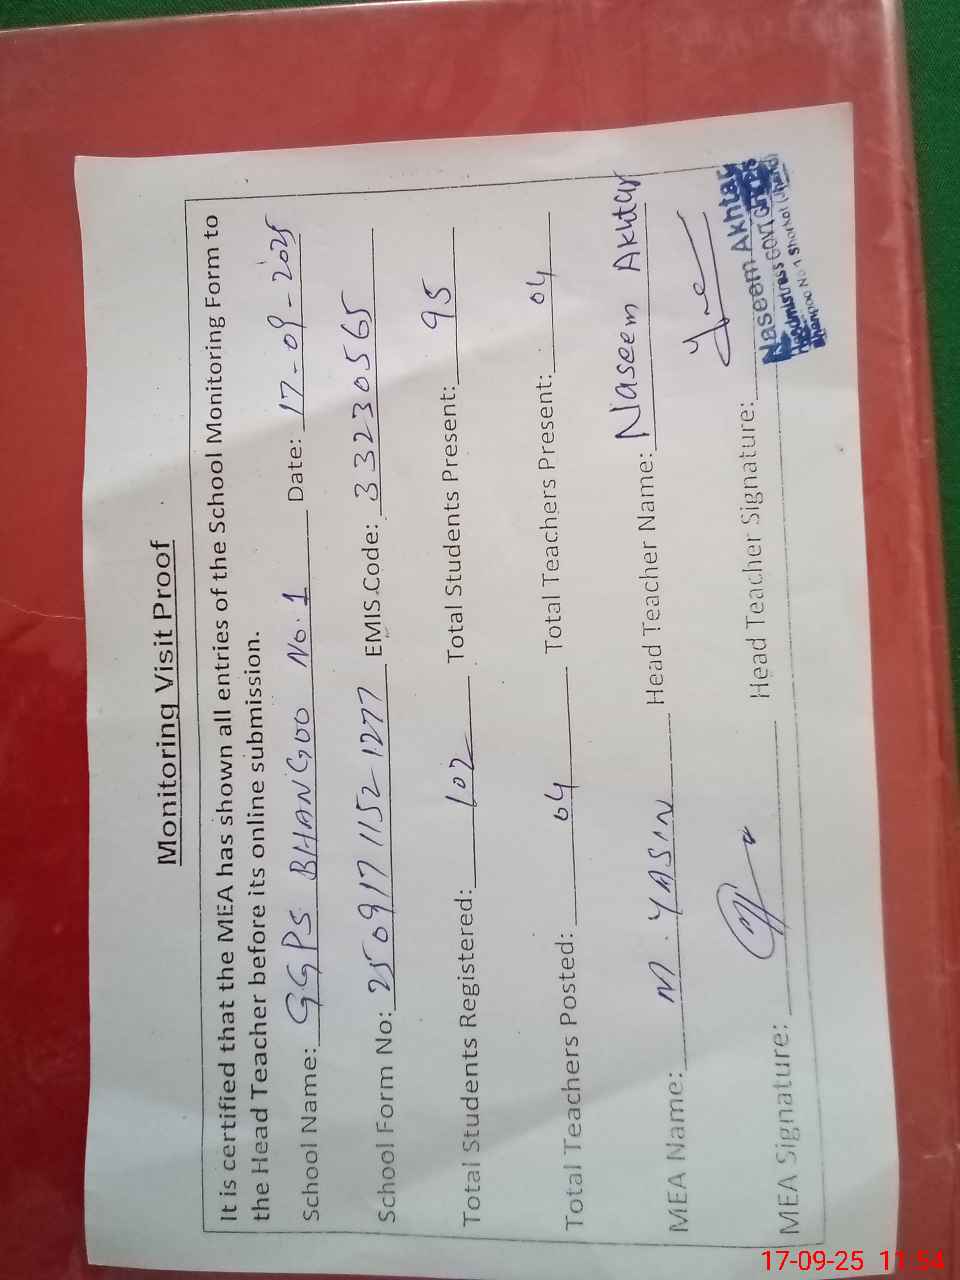 Monitoring Visit Proof
It is certified that the MEA has shown all entries of the School Monitoring Form to
the Head Teacher before its online submission.
School Name: GGPS BHANGOO No. 1 Date: 17-09-2025
School Form No: 2509171152 1277 EMIS Code: 33230565
Total Students Registered: 102 Total Students Present: 95
Total Teachers Posted: 04 Total Teachers Present: 04
MEA Name: M. YASIN Head Teacher Name: Naseem Akhtar
MEA Signature: Head Teacher Signature:
Naseem Akhtar
No 1 Shorkot (Jhang)
17-09-25 11:54